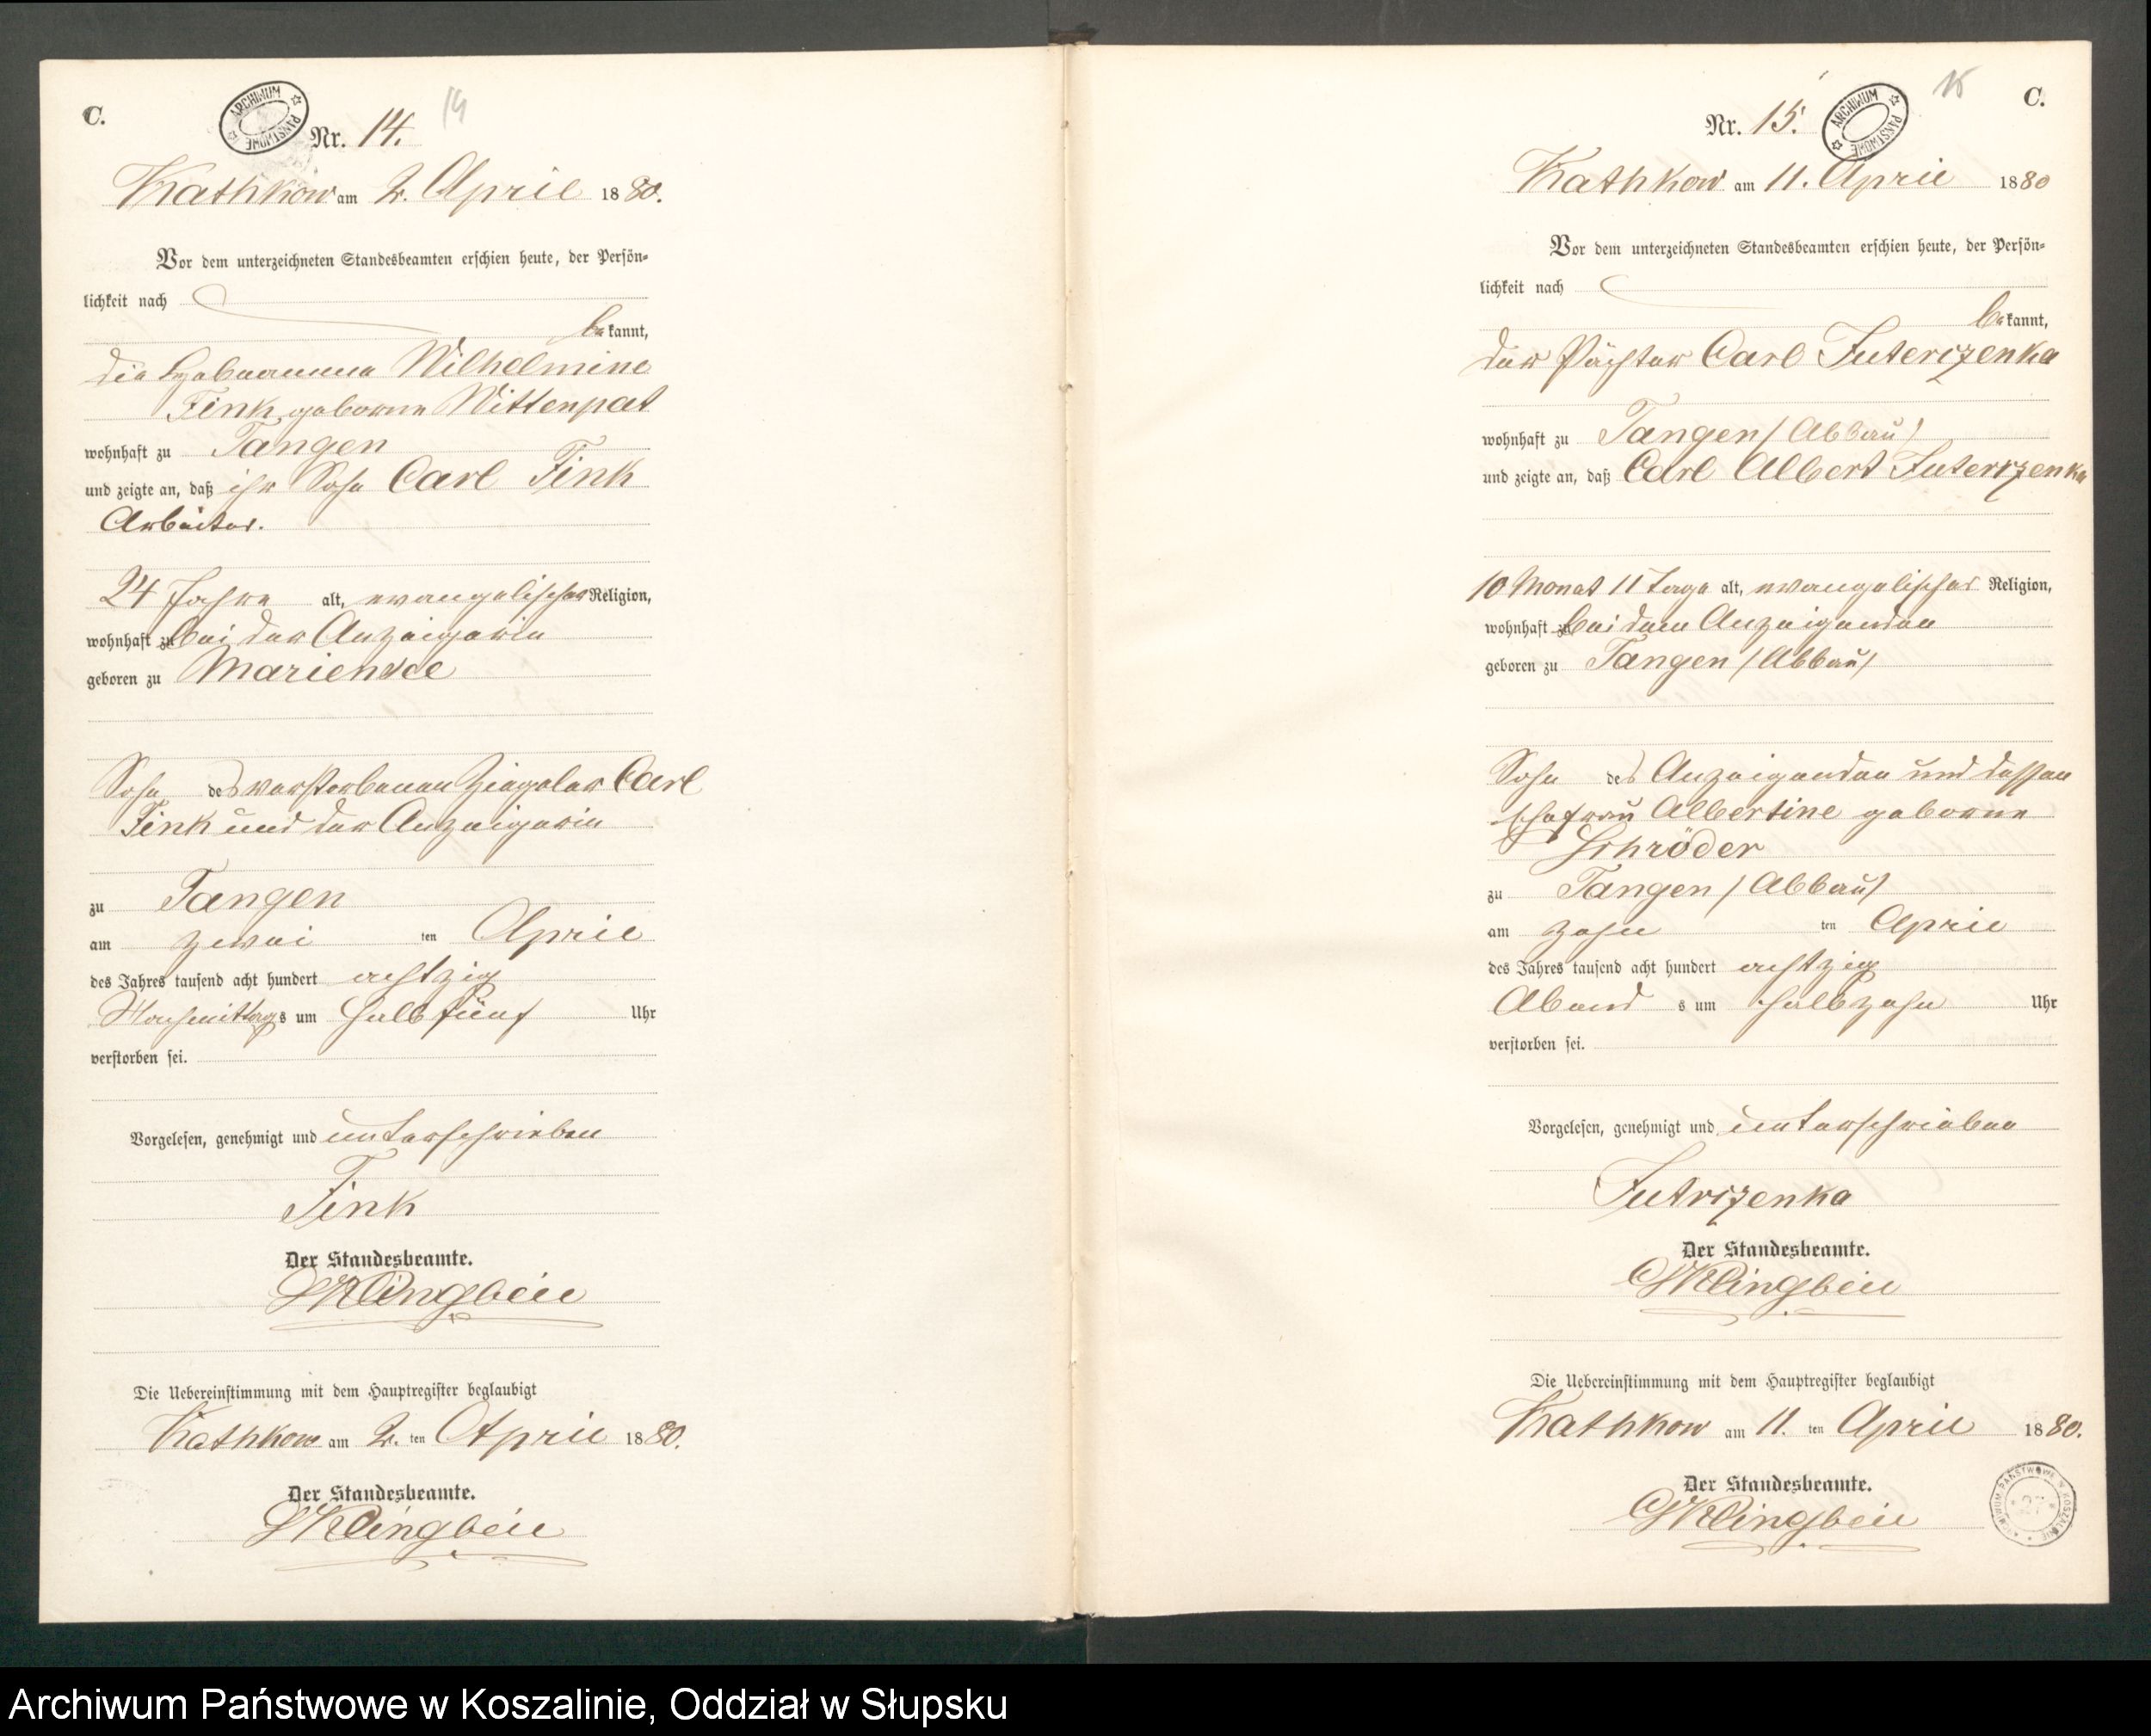 C.
ARCHIWUM PAŃSTWOWE
Nr. 14.
14
Kathkow am 2. April 1880.
Vor dem unterzeichneten Standesbeamten erschien heute, der Persön-
lichkeit nach
bekannt,
die Hebeamme Wilhelmine
Fink geborne Wittenpat
wohnhaft zu Tangen
und zeigte an, daß ihr Sohn Carl Fink
Arbeiter.
24 Jahre alt, evangelischer Religion,
wohnhaft zu bei der Anzeigerin
geboren zu Mariensee
Sohn des verstorbenen Ziegeler Carl
Fink und der Anzeigerin
zu Tangen
am zwei ten April
des Jahres tausend acht hundert achtzig
Nachmittags um halb fünf Uhr
verstorben sei.
Vorgelesen, genehmigt und unterschrieben
Fink
Der Standesbeamte.
Klingbeil
Die Uebereinstimmung mit dem Hauptregister beglaubigt
Kathkow am 2. ten April 1880.
Der Standesbeamte.
Klingbeil
15
C.
Nr. 15.
ARCHIWUM PAŃSTWOWE
Kathkow am 11. April 1880
Vor dem unterzeichneten Standesbeamten erschien heute, der Persön-
lichkeit nach
bekannt,
der Pächter Carl Futerczenka
wohnhaft zu Tangen /Abbau/
und zeigte an, daß Carl Albert Futerczenka
10 Monat 11 Tage alt, evangelischer Religion,
wohnhaft zu bei dem Anzeigenden
geboren zu Tangen /Abbau/
Sohn des Anzeigenden und dessen
Ehefrau Albertine geborne
Schröder
zu Tangen /Abbau/
am zehn ten April
des Jahres tausend acht hundert achtzig
Abends um halb zehn Uhr
verstorben sei.
Vorgelesen, genehmigt und unterschrieben
Futrczenka
Der Standesbeamte.
Klingbeil
Die Uebereinstimmung mit dem Hauptregister beglaubigt
Kathkow am 11. ten April 1880.
Der Standesbeamte.
Klingbeil
ARCHIWUM PAŃSTWOWE W KOSZALINIE
27
Archiwum Państwowe w Koszalinie, Oddział w Słupsku